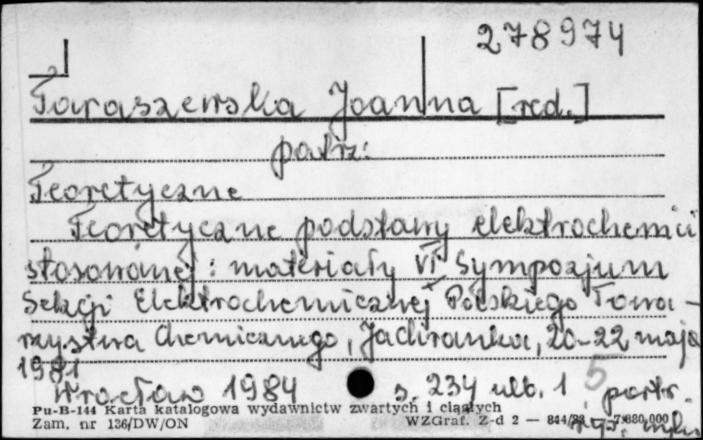 278974
Taraszewska Joanna [red.]
patrz:
Teoretyczne
Teoretyczne podstawy elektrochemii
stosowanej: materiały VI Sympozjum
Sekcji Elektrochemicznej Polskiego Towa-
rzystwa Chemicznego, Jachranka, 20-22 maja
1981
Wrocław 1984 s. 234 nlb. 1 portr.
5
Pu-B-144 Karta katalogowa wydawnictw zwartych i ciągłych
Zam. nr 136/DW/ON WZGraf. Z-d 2 — 844/83 7.680.000